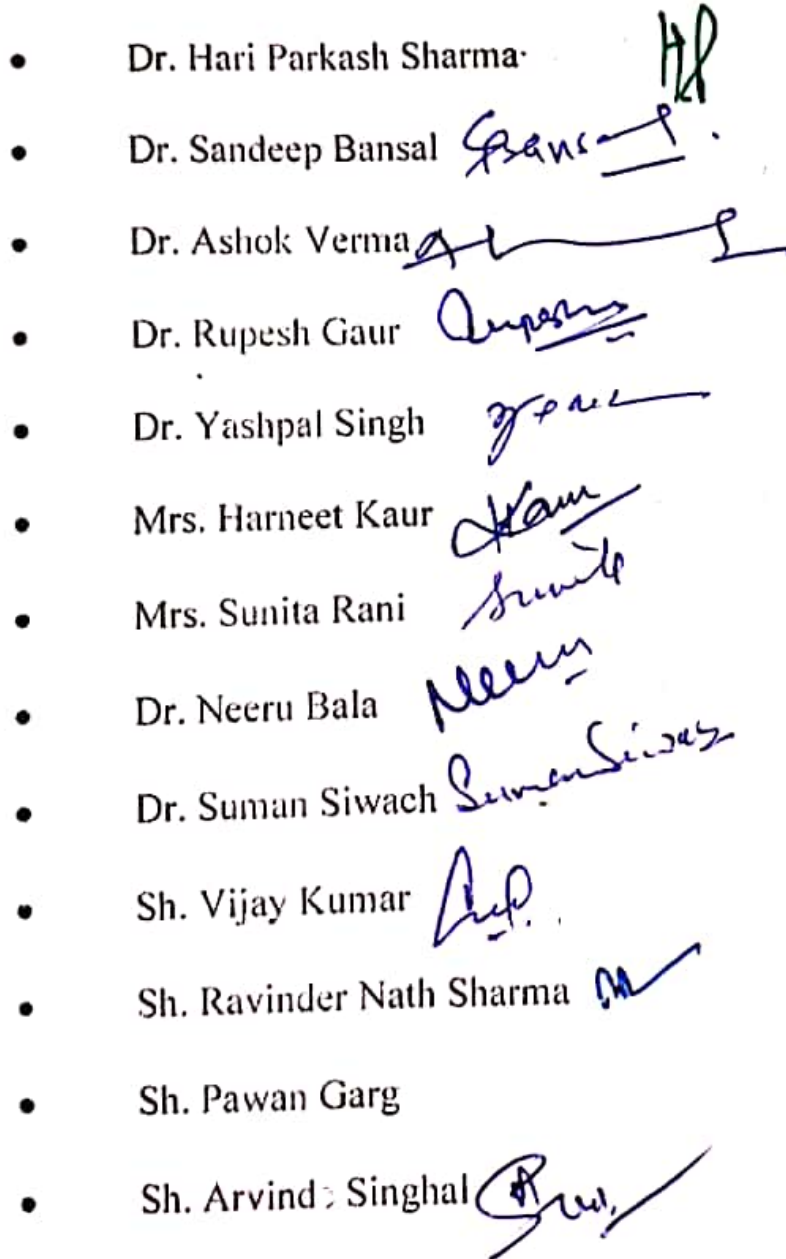 • Dr. Hari Parkash Sharma HP
• Dr. Sandeep Bansal SBansal
• Dr. Ashok Verma
• Dr. Rupesh Gaur Rupesh
• Dr. Yashpal Singh
• Mrs. Harneet Kaur Kaur
• Mrs. Sunita Rani Sunita
• Dr. Neeru Bala Neeru
• Dr. Suman Siwach Suman Siwach
• Sh. Vijay Kumar
• Sh. Ravinder Nath Sharma
• Sh. Pawan Garg
• Sh. Arvind Singhal